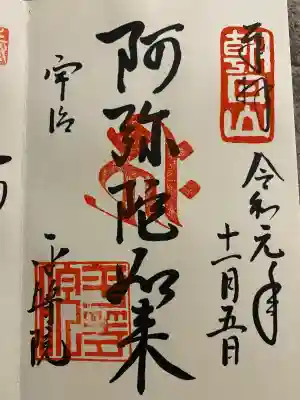 奉拝
朝日山
令和元年
十一月五日
阿弥陀如来
宇治
平等院